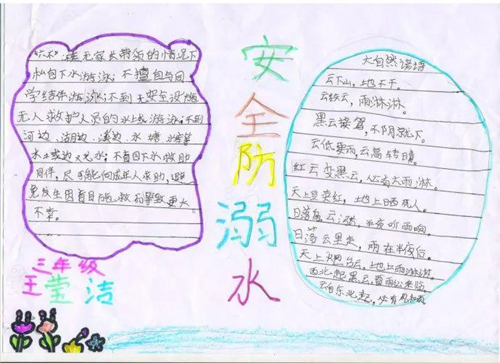 在无家长带领的情况下
私自下水游泳;不擅自与同
学结伴游泳;不到无安全设施
无人救护人员的水域游泳;不到
河边、湖边、溪边、水塘
水边 玩水;不盲目下水救助
同伴,尽可能向成年人求助,避
免发生因盲目施救而导致更大
不幸。
三年级
王莹洁
安全防溺水
大自然谚语
云下山,地不干。
云 ,雨淋淋。
黑云接驾,不阴就下。
云低要雨,云高转晴。
红云变黑云,必有大雨淋。
天上 ,地上晒 人。
日落 云涨,半夜听雨响
日落云里走,雨在半夜后。
天上 云,地上雨淋淋
西北起黑云,雷雨必来临